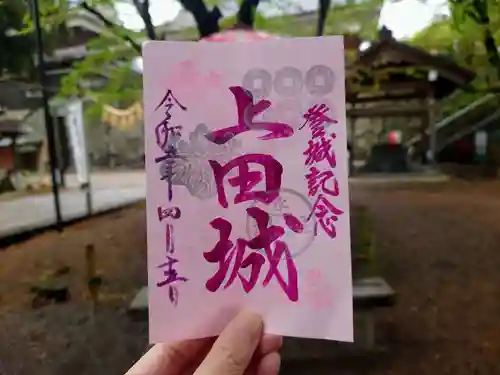 登城記念
上田城
令和六年四月十五日